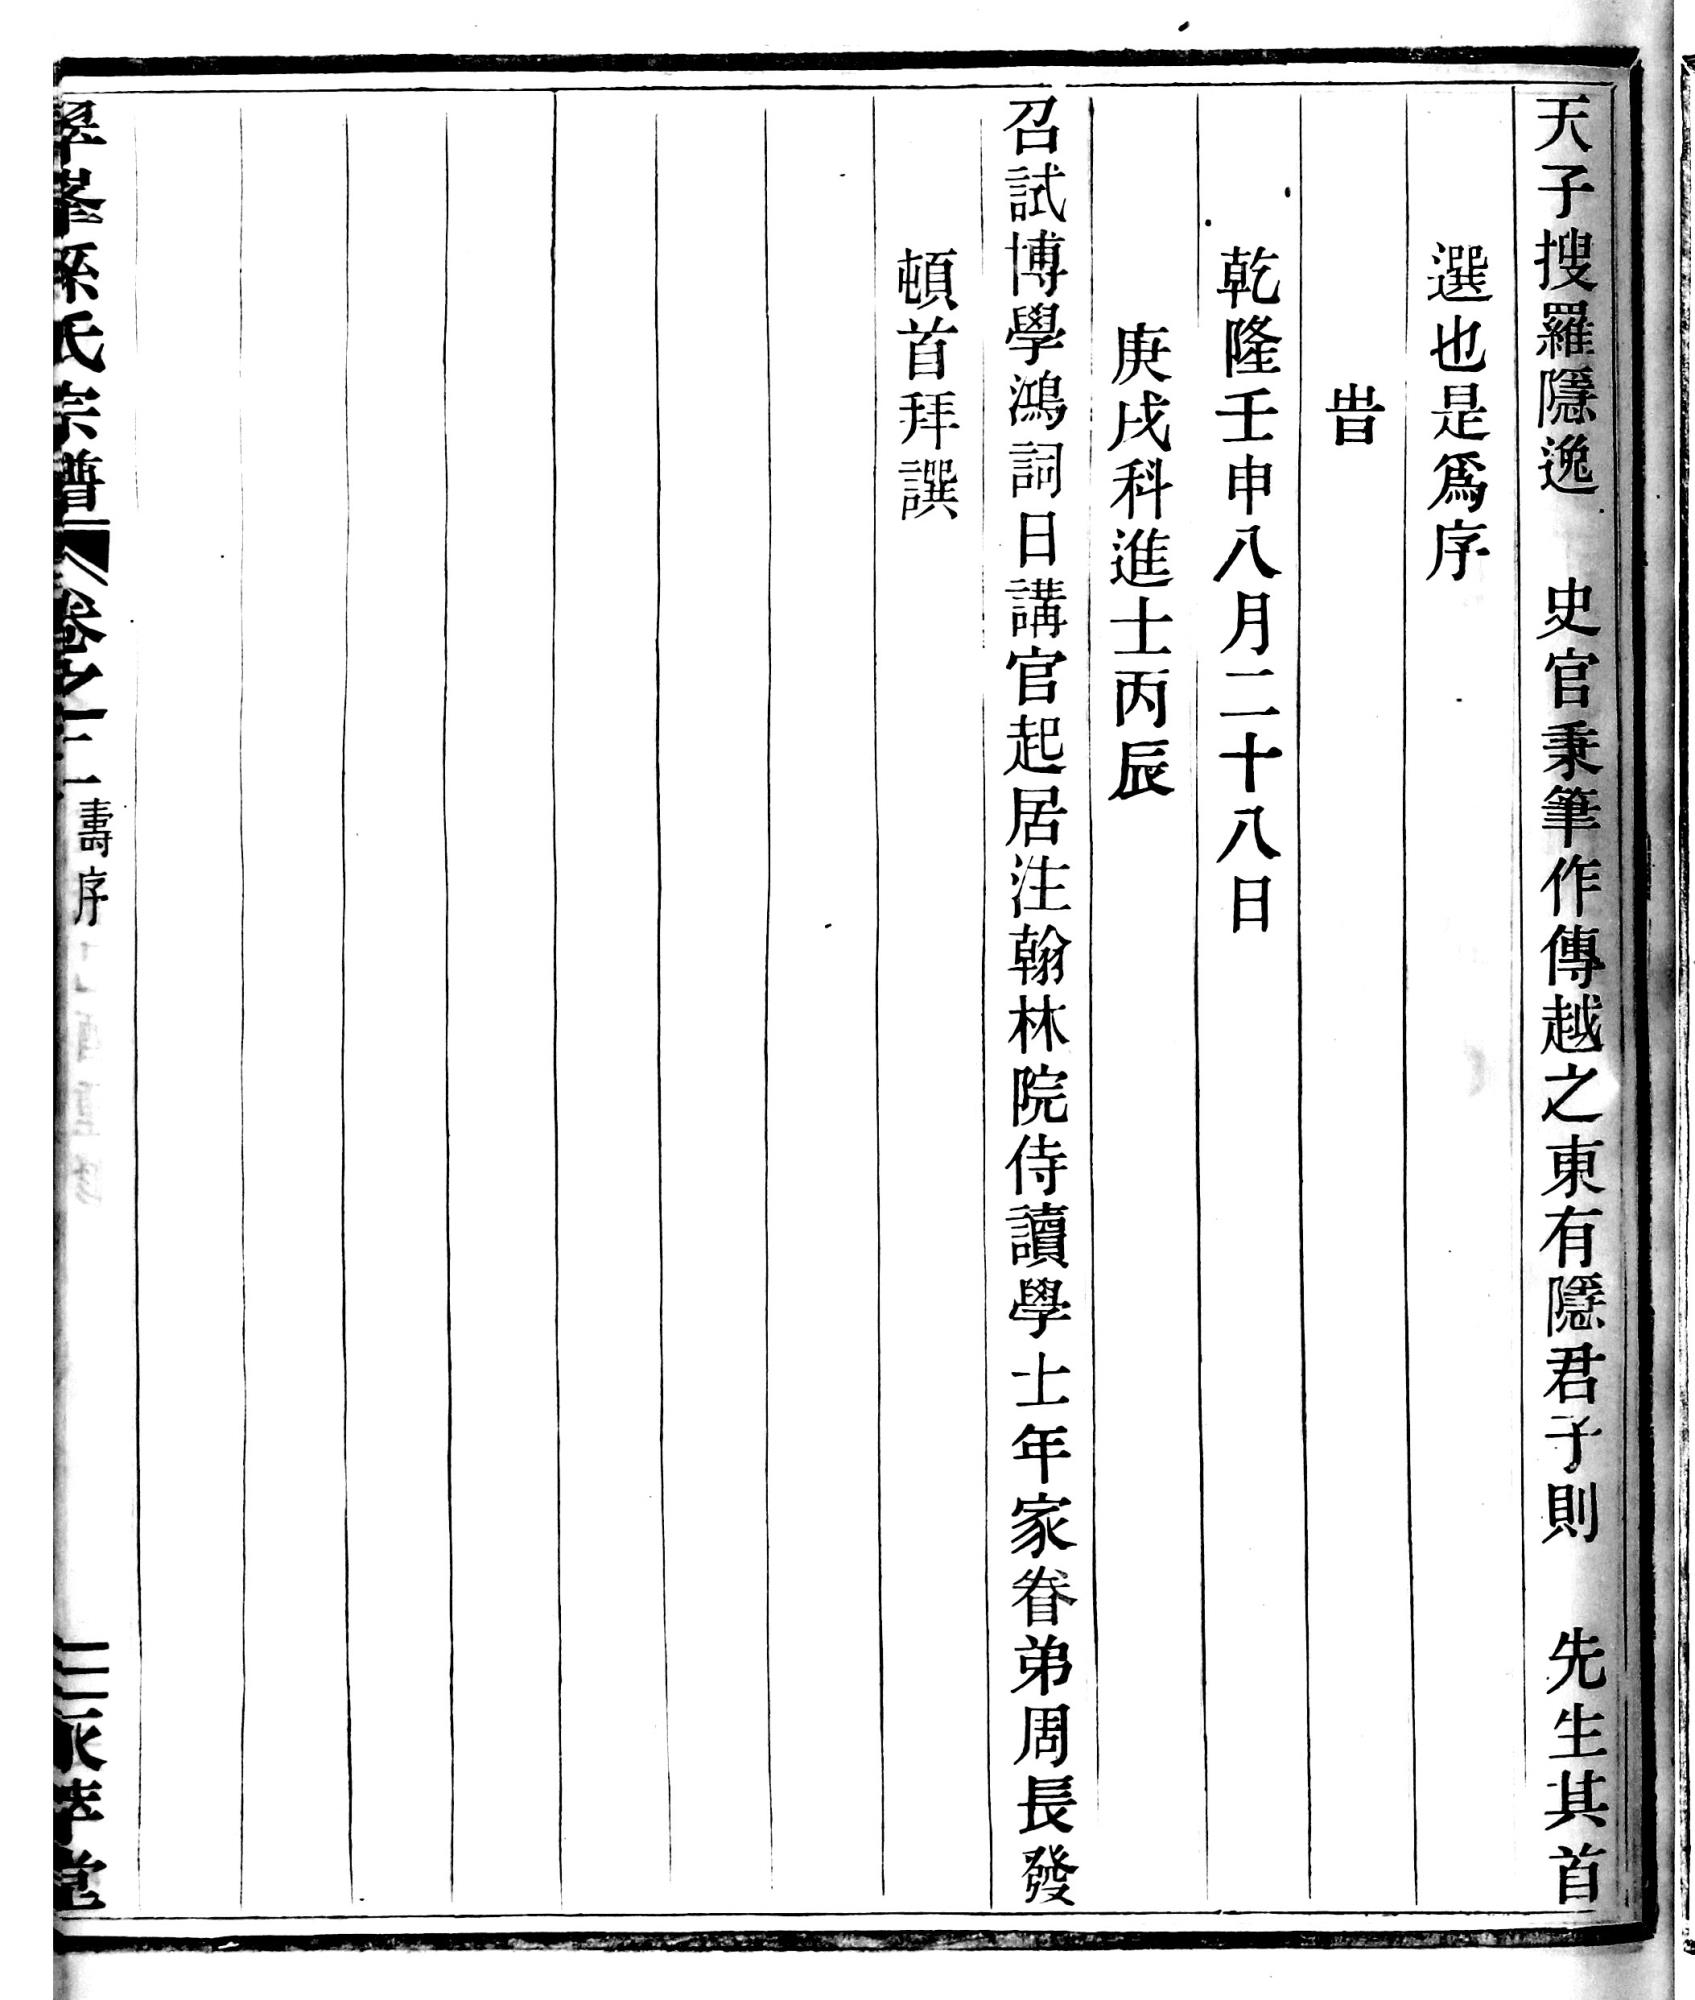 天子搜羅隱逸　史官秉筆作傳越之東有隱君子則　先生其首
選也是爲序
旹
乾隆壬申八月二十八日
庚戌科進士丙辰
召試博學鴻詞日講官起居注翰林院侍讀學士年家眷弟周長發
頓首拜譔
孫氏宗譜　卷之
壽序
堂